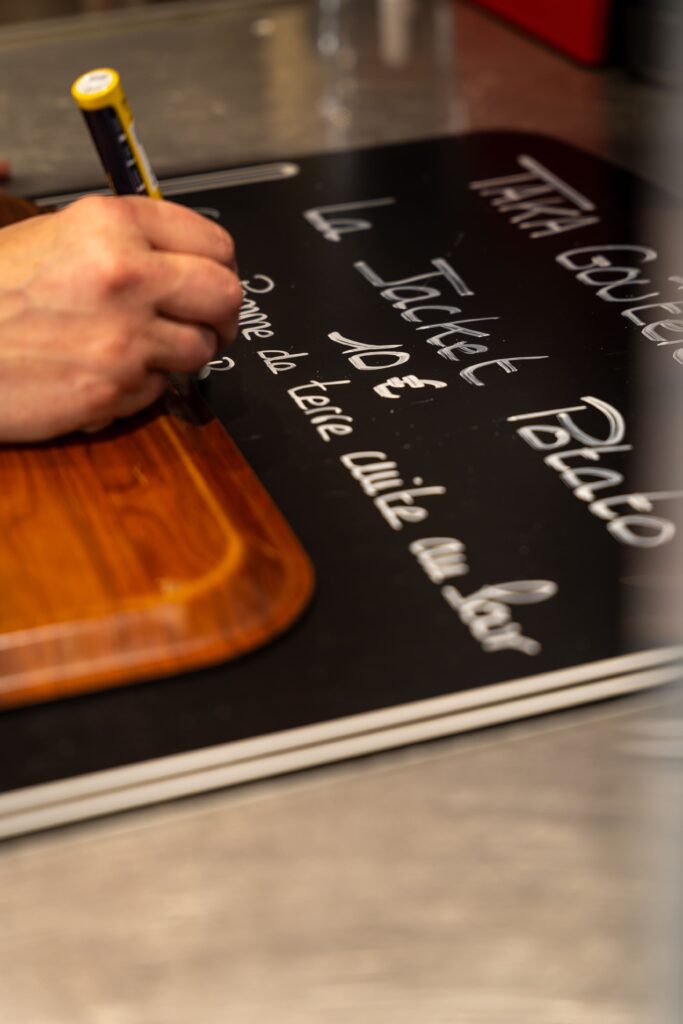 TAKA Goûter
La Jacket Potato
10€
Pomme de terre cuite au four